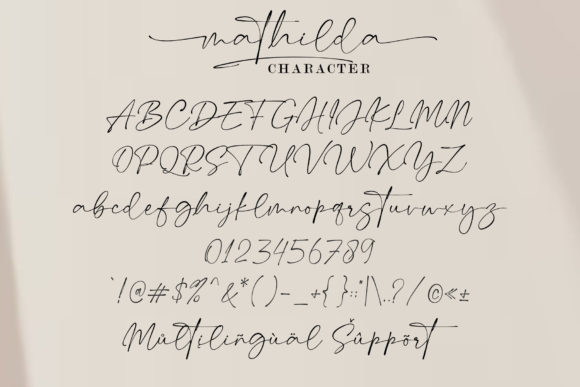 mathilda
CHARACTER
ABCDEFGHIJKLMN
OPQRSTUVWXYZ
abcdefghijklmnopqrstuvwxyz
0123456789
`!@#$%^&*()-_+{}:"|\,.?/©«±
Můltįliñgùäl Šûppõrt